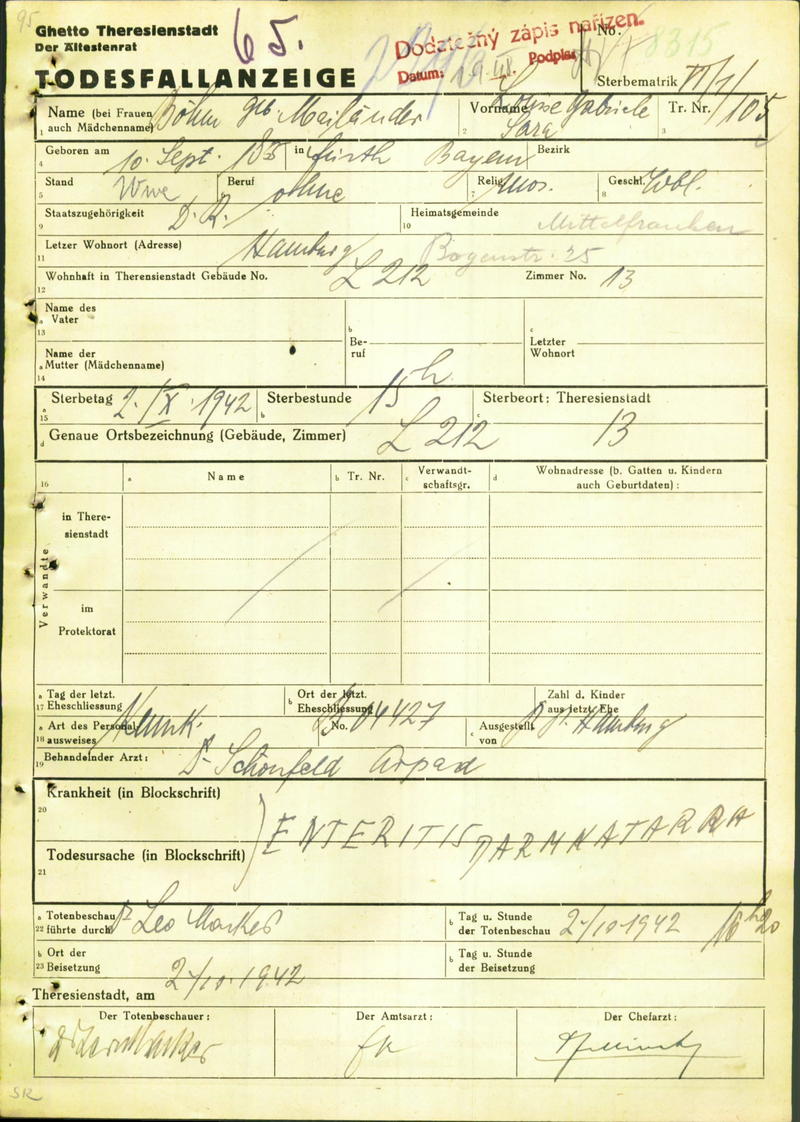 95
Ghetto Theresienstadt
Der Ältestenrat
65.
TODESFALLANZEIGE
Dodatečný zápis nařízen.
Datum: Podpis
No. 8315
Sterbematrik VI/1
Name (bei Frauen auch Mädchenname) Böhm geb. Mailänder
Vorname Gabriele
Sara
Tr. Nr. /105
1 2 3
Geboren am 10. Sept. in Fürth Bayern Bezirk
4
Stand Wwe Beruf ohne Relig. mos. Geschl. Wbl.
5 7 8
Staatszugehörigkeit D.R. Heimatsgemeinde Mittelfranken
9 10
Letzer Wohnort (Adresse) Hamburg Bogenstr. 25
11
Wohnhaft in Theresienstadt Gebäude No. L 212 Zimmer No. 13
12
Name des
a Vater
13
b Beruf
c Letzter Wohnort
Name der
a Mutter (Mädchenname)
14
a Sterbetag 2./X.1942 b Sterbestunde 15h c Sterbeort: Theresienstadt
15
d Genaue Ortsbezeichnung (Gebäude, Zimmer) L 212 13
16 a Name b Tr. Nr. c Verwandt-schaftsgr. d Wohnadresse (b. Gatten u. Kindern auch Geburtdaten) :
Verwandte
in There-
sienstadt
im
Protektorat
a Tag der letzt. b Ort der letzt. Zahl d. Kinder
17 Eheschliessung Eheschliessung aus letzt. Ehe
a Art des Personal- Kennk. No. 04427 c Ausgestellt Hamburg
18 ausweises von
19 Behandelnder Arzt: Dr Schönfeld Arpad
Krankheit (in Blockschrift)
20
ENTERITIS DARMKATARRH
Todesursache (in Blockschrift)
21
a Totenbeschau Dr Leo b Tag u. Stunde
22 führte durch der Totenbeschau 2/10 1942 16h20
b Ort der b Tag u. Stunde
23 Beisetzung der Beisetzung
Theresienstadt, am 2/10.1942
Der Totenbeschauer: Der Amtsarzt: Der Chefarzt:
SR